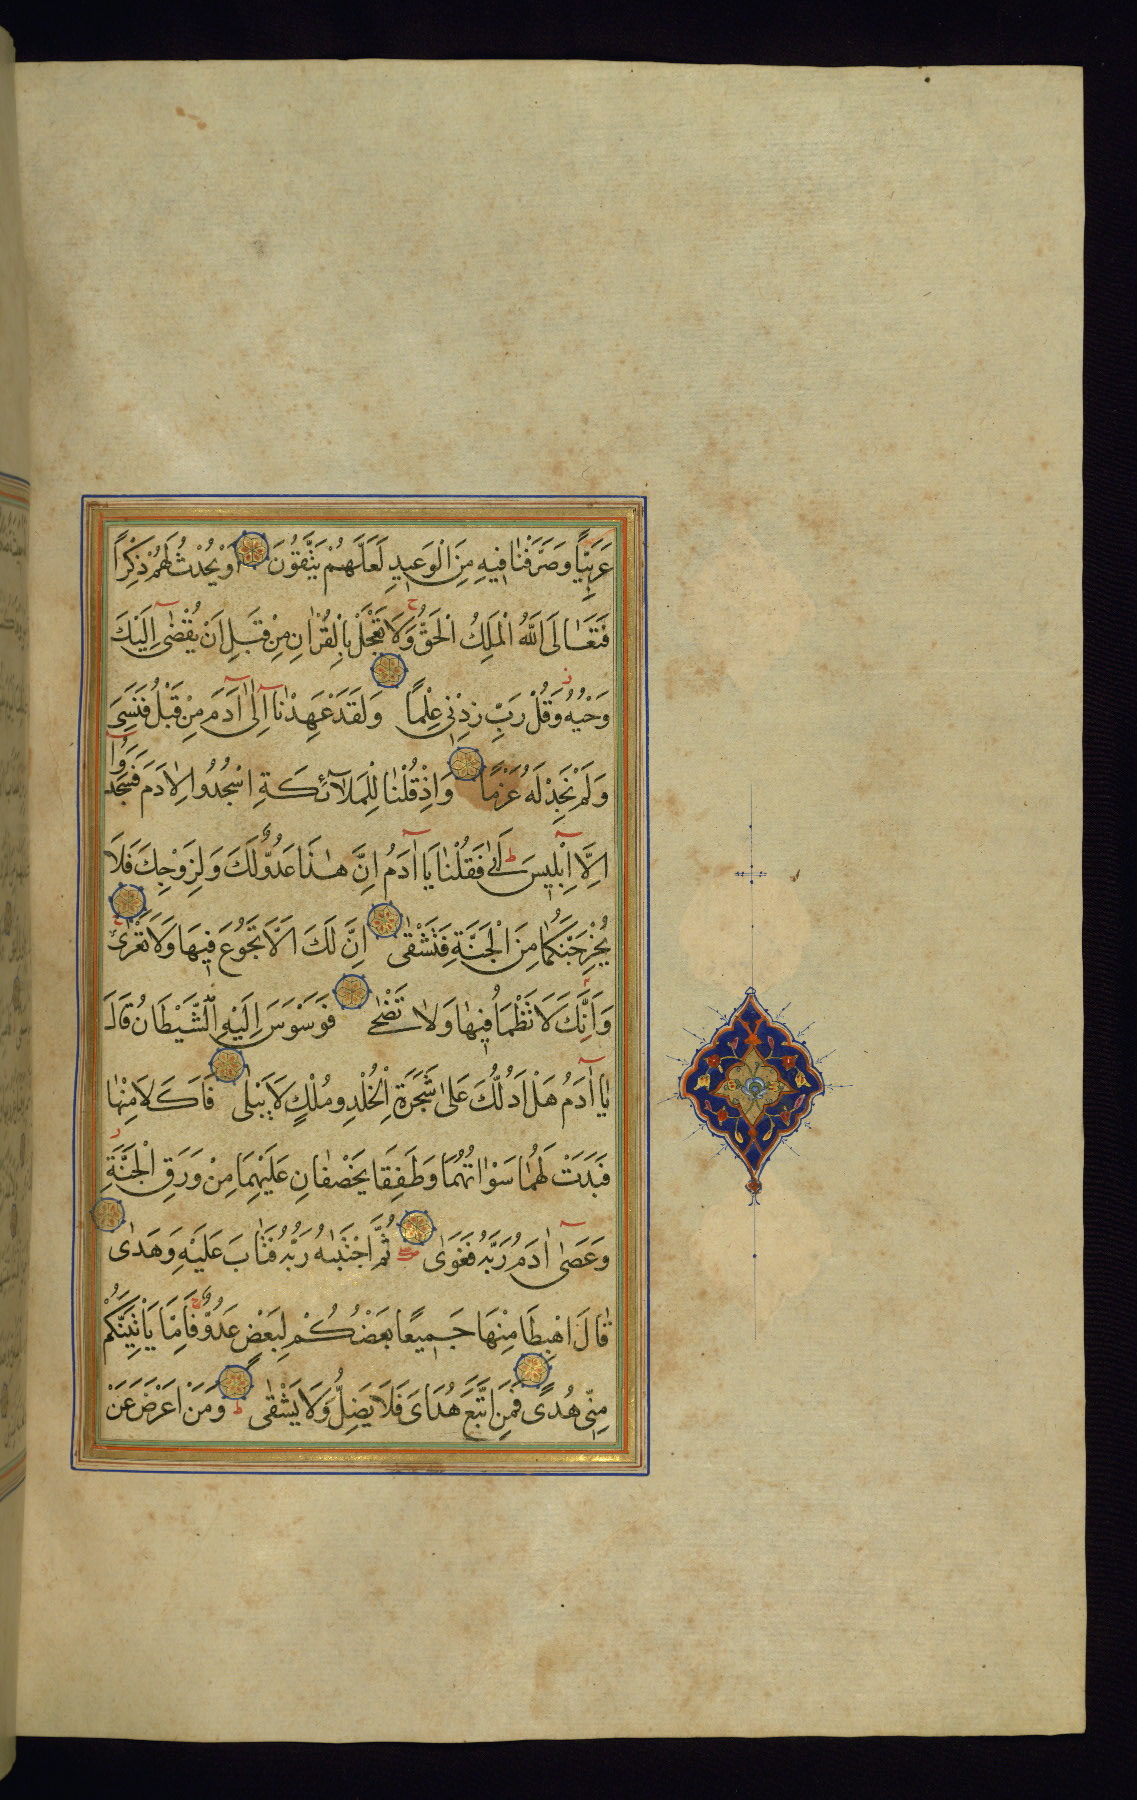 عَرَبِيًّا وَصَرَّفْنَا فِيهِ مِنَ الْوَعِيدِ لَعَلَّهُمْ يَتَّقُونَ اَوْ يُحْدِثُ لَهُمْ ذِكْرًا
فَتَعَالَى اللّٰهُ الْمَلِكُ الْحَقُّ وَلَا تَعْجَلْ بِالْقُرْاٰنِ مِنْ قَبْلِ اَنْ يُقْضٰى اِلَيْكَ
وَحْيُهُ وَقُلْ رَبِّ زِدْنِى عِلْمًا وَلَقَدْ عَهِدْنَا اِلٰى اٰدَمَ مِنْ قَبْلُ فَنَسِىَ
وَلَمْ نَجِدْ لَهُ عَزْمًا وَاِذْ قُلْنَا لِلْمَلَآئِكَةِ اسْجُدُوا لِاٰدَمَ فَسَجَدُوا
اِلَّا اِبْلِيسَ اَبٰى فَقُلْنَا يَا اٰدَمُ اِنَّ هٰذَا عَدُوٌّ لَكَ وَلِزَوْجِكَ فَلَا
يُخْرِجَنَّكُمَا مِنَ الْجَنَّةِ فَتَشْقٰى اِنَّ لَكَ اَلَّا تَجُوعَ فِيهَا وَلَا تَعْرٰى
وَاَنَّكَ لَا تَظْمَأُ فِيهَا وَلَا تَضْحٰى فَوَسْوَسَ اِلَيْهِ الشَّيْطَانُ قَالَ
يَا اٰدَمُ هَلْ اَدُلُّكَ عَلٰى شَجَرَةِ الْخُلْدِ وَمُلْكٍ لَا يَبْلٰى فَاَكَلَا مِنْهَا
فَبَدَتْ لَهُمَا سَوْاٰتُهُمَا وَطَفِقَا يَخْصِفَانِ عَلَيْهِمَا مِنْ وَرَقِ الْجَنَّةِ
وَعَصٰى اٰدَمُ رَبَّهُ فَغَوٰى ثُمَّ اجْتَبٰيهُ رَبُّهُ فَتَابَ عَلَيْهِ وَهَدٰى
قَالَ اهْبِطَا مِنْهَا جَمِيعًا بَعْضُكُمْ لِبَعْضٍ عَدُوٌّ فَاِمَّا يَأْتِيَنَّكُمْ
مِنِّى هُدًى فَمَنِ اتَّبَعَ هُدَاىَ فَلَا يَضِلُّ وَلَا يَشْقٰى وَمَنْ اَعْرَضَ عَنْ